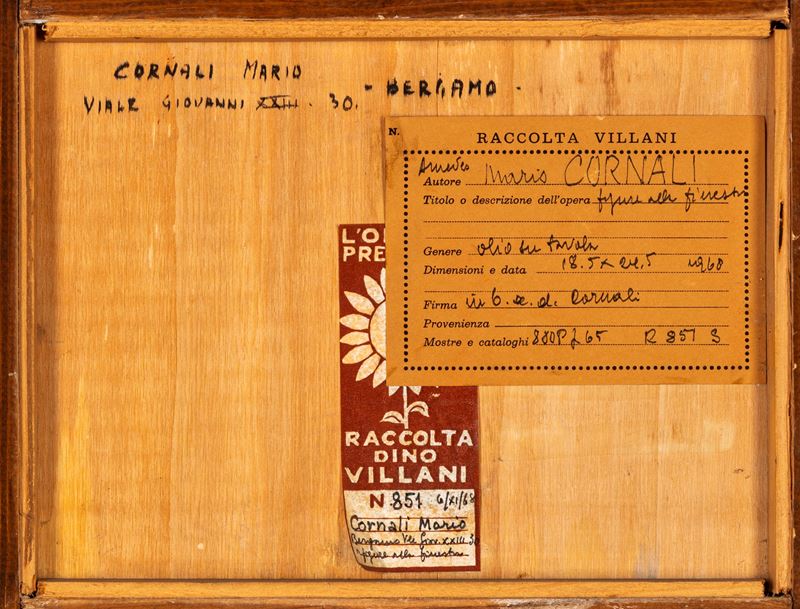 CORNALI MARIO
VIALE GIOVANNI XXIII. 30. - BERGAMO -
N.
RACCOLTA VILLANI
Amedeo
Autore Mario CORNALI
Titolo o descrizione dell'opera figure alla finestra
Genere olio su tavola
Dimensioni e data 18.5 x 24.5 1960
Firma in b. a. d. Cornali
Provenienza
Mostre e cataloghi 65 R 851 S
L'O
PRE
RACCOLTA
DINO
VILLANI
N 851 6/XI/68
Cornali Mario
Bergamo Vle Giov. XXIII 30
figure alla finestra